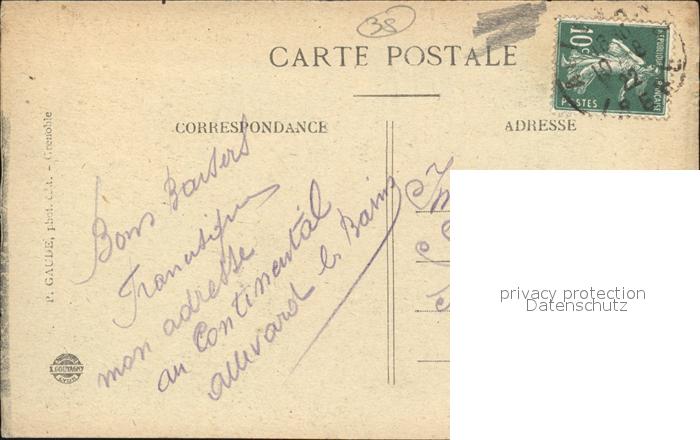 38
CARTE POSTALE
10c
POSTES
CORRESPONDANCE
ADRESSE
P. GAUDE, phot. édit. - Grenoble
Bons Baisers
Francisque
mon adresse
au Continental
allevard les Bains
LYON
privacy protection
Datenschutz